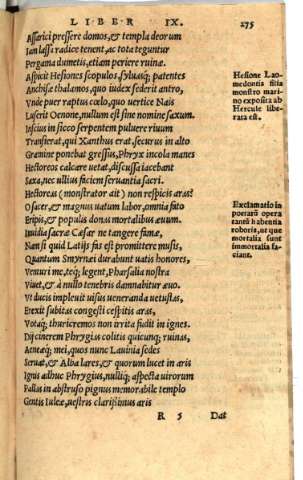 LIBER IX. 275
Assarici pressere domos, & templa deorum
Iam lassa radice tenent, ac tota teguntur
Pergama dumetis, etiam periere ruinæ.
Aspicit Hesiones scopulos, syluasq; patentes
Anchisæ thalamos, quo iudex sederit antro,
Vnde puer raptus cœlo, quo uertice Nais
Luserit Oenone, nullum est sine nomine saxum.
Inscius in sicco serpentem puluere riuum
Transierat, qui Xanthus erat, securus in alto
Gramine ponebat gressus, Phryx incola manes
Hectoreos calcare uetat, discussa iacebant
Saxa, nec ullius faciem seruantia sacri.
Hectoreas (monstrator ait) non respicis aras?
O sacer, & magnus uatum labor, omnia fato
Eripis, & populis donas mortalibus æuum.
Inuidia sacræ Cæsar ne tangere famæ,
Nam si quid Latijs fas est promittere musis,
Quantum Smyrnæi durabunt uatis honores,
Venturi me, teq; legent, Pharsalia nostra
Viuet, & à nullo tenebris damnabitur æuo.
Vt ducis impleuit uisus ueneranda uetustas,
Erexit subitas congesti cespitis aras,
Votaq; thuricremos non irrita fudit in ignes.
Dij cinerem Phrygias colitis quicunq; ruinas,
Aeneæq; mei, quos nunc Lauinia sedes
Seruat, & Alba lares, & quorum lucet in aris
Ignis adhuc Phrygius, nulliq; aspecta uirorum
Pallas in abstruso pignus memorabile templo
Gentis Iuleæ, uestris clarissimus aris
R 5 Dat
Hesione Lao-
medontis filia
monstro mari-
no exposita ab
Hercule libe-
rata est.
Exclamatio in
poetarū opera
tantū habentia
roboris, ut quæ
mortalia sunt
immortalia fa-
ciant.